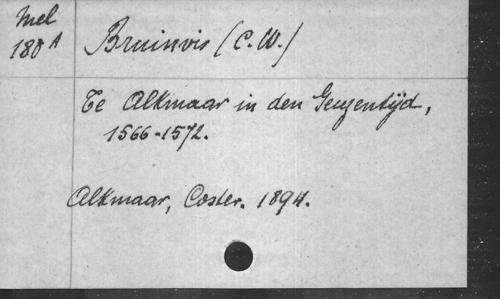 Mel
180 A
Bruinvis (C.W.)
Te Alkmaar in den Geuzentijd,
1566-1572.
Alkmaar, Coster. 1894.